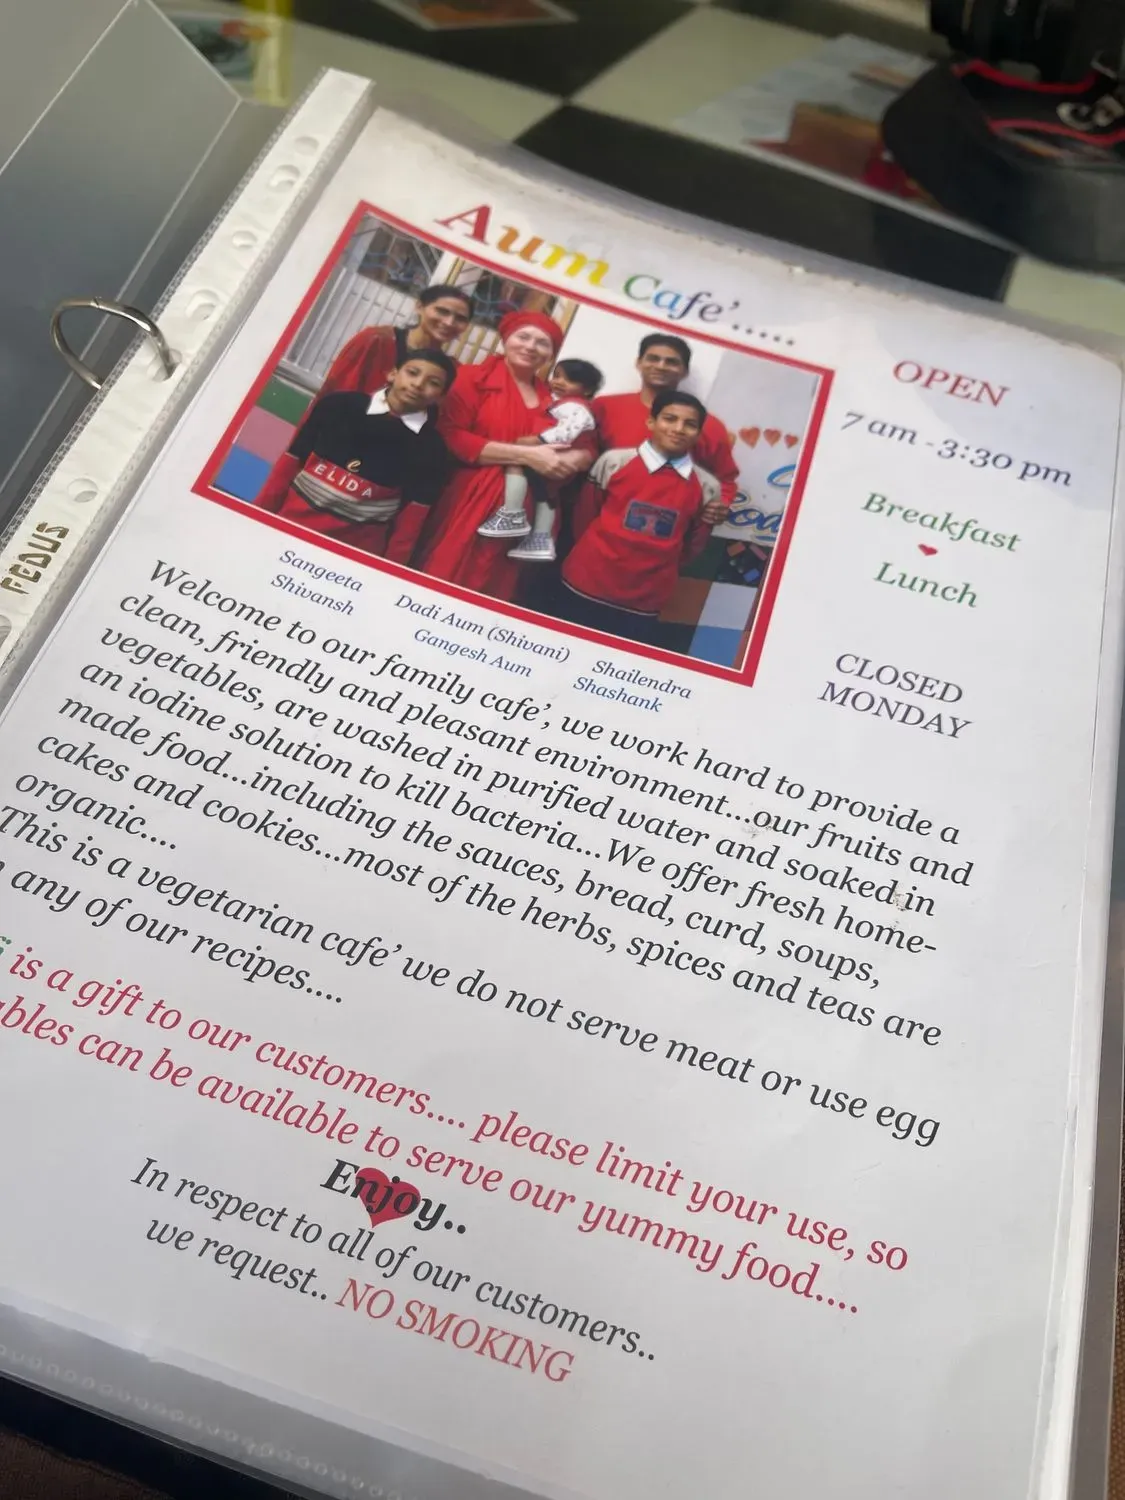 Aum Cafe'.....
OPEN
7 am - 3:30 pm
Breakfast
Lunch
CLOSED
MONDAY
ELIDA
Sangeeta
Shivansh
Dadi Aum (Shivani)
Gangesh Aum
Shailendra
Shashank
Welcome to our family cafe', we work hard to provide a
clean, friendly and pleasant environment...our fruits and
vegetables, are washed in purified water and soaked in
an iodine solution to kill bacteria...We offer fresh home-
made food...including the sauces, bread, curd, soups,
cakes and cookies...most of the herbs, spices and teas are
organic....
This is a vegetarian cafe' we do not serve meat or use egg
any of our recipes....
is a gift to our customers.... please limit your use, so
ables can be available to serve our yummy food....
Enjoy..
In respect to all of our customers..
we request.. NO SMOKING
FEDUS